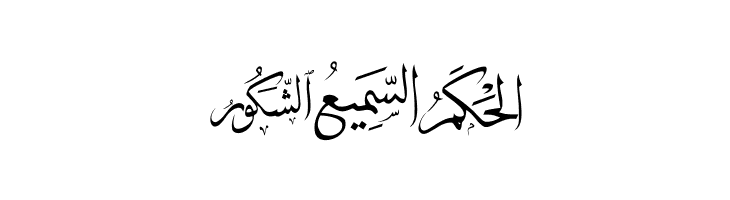 الْحَكَمُ السَّمِيعُ ٱلشَّكُورُ